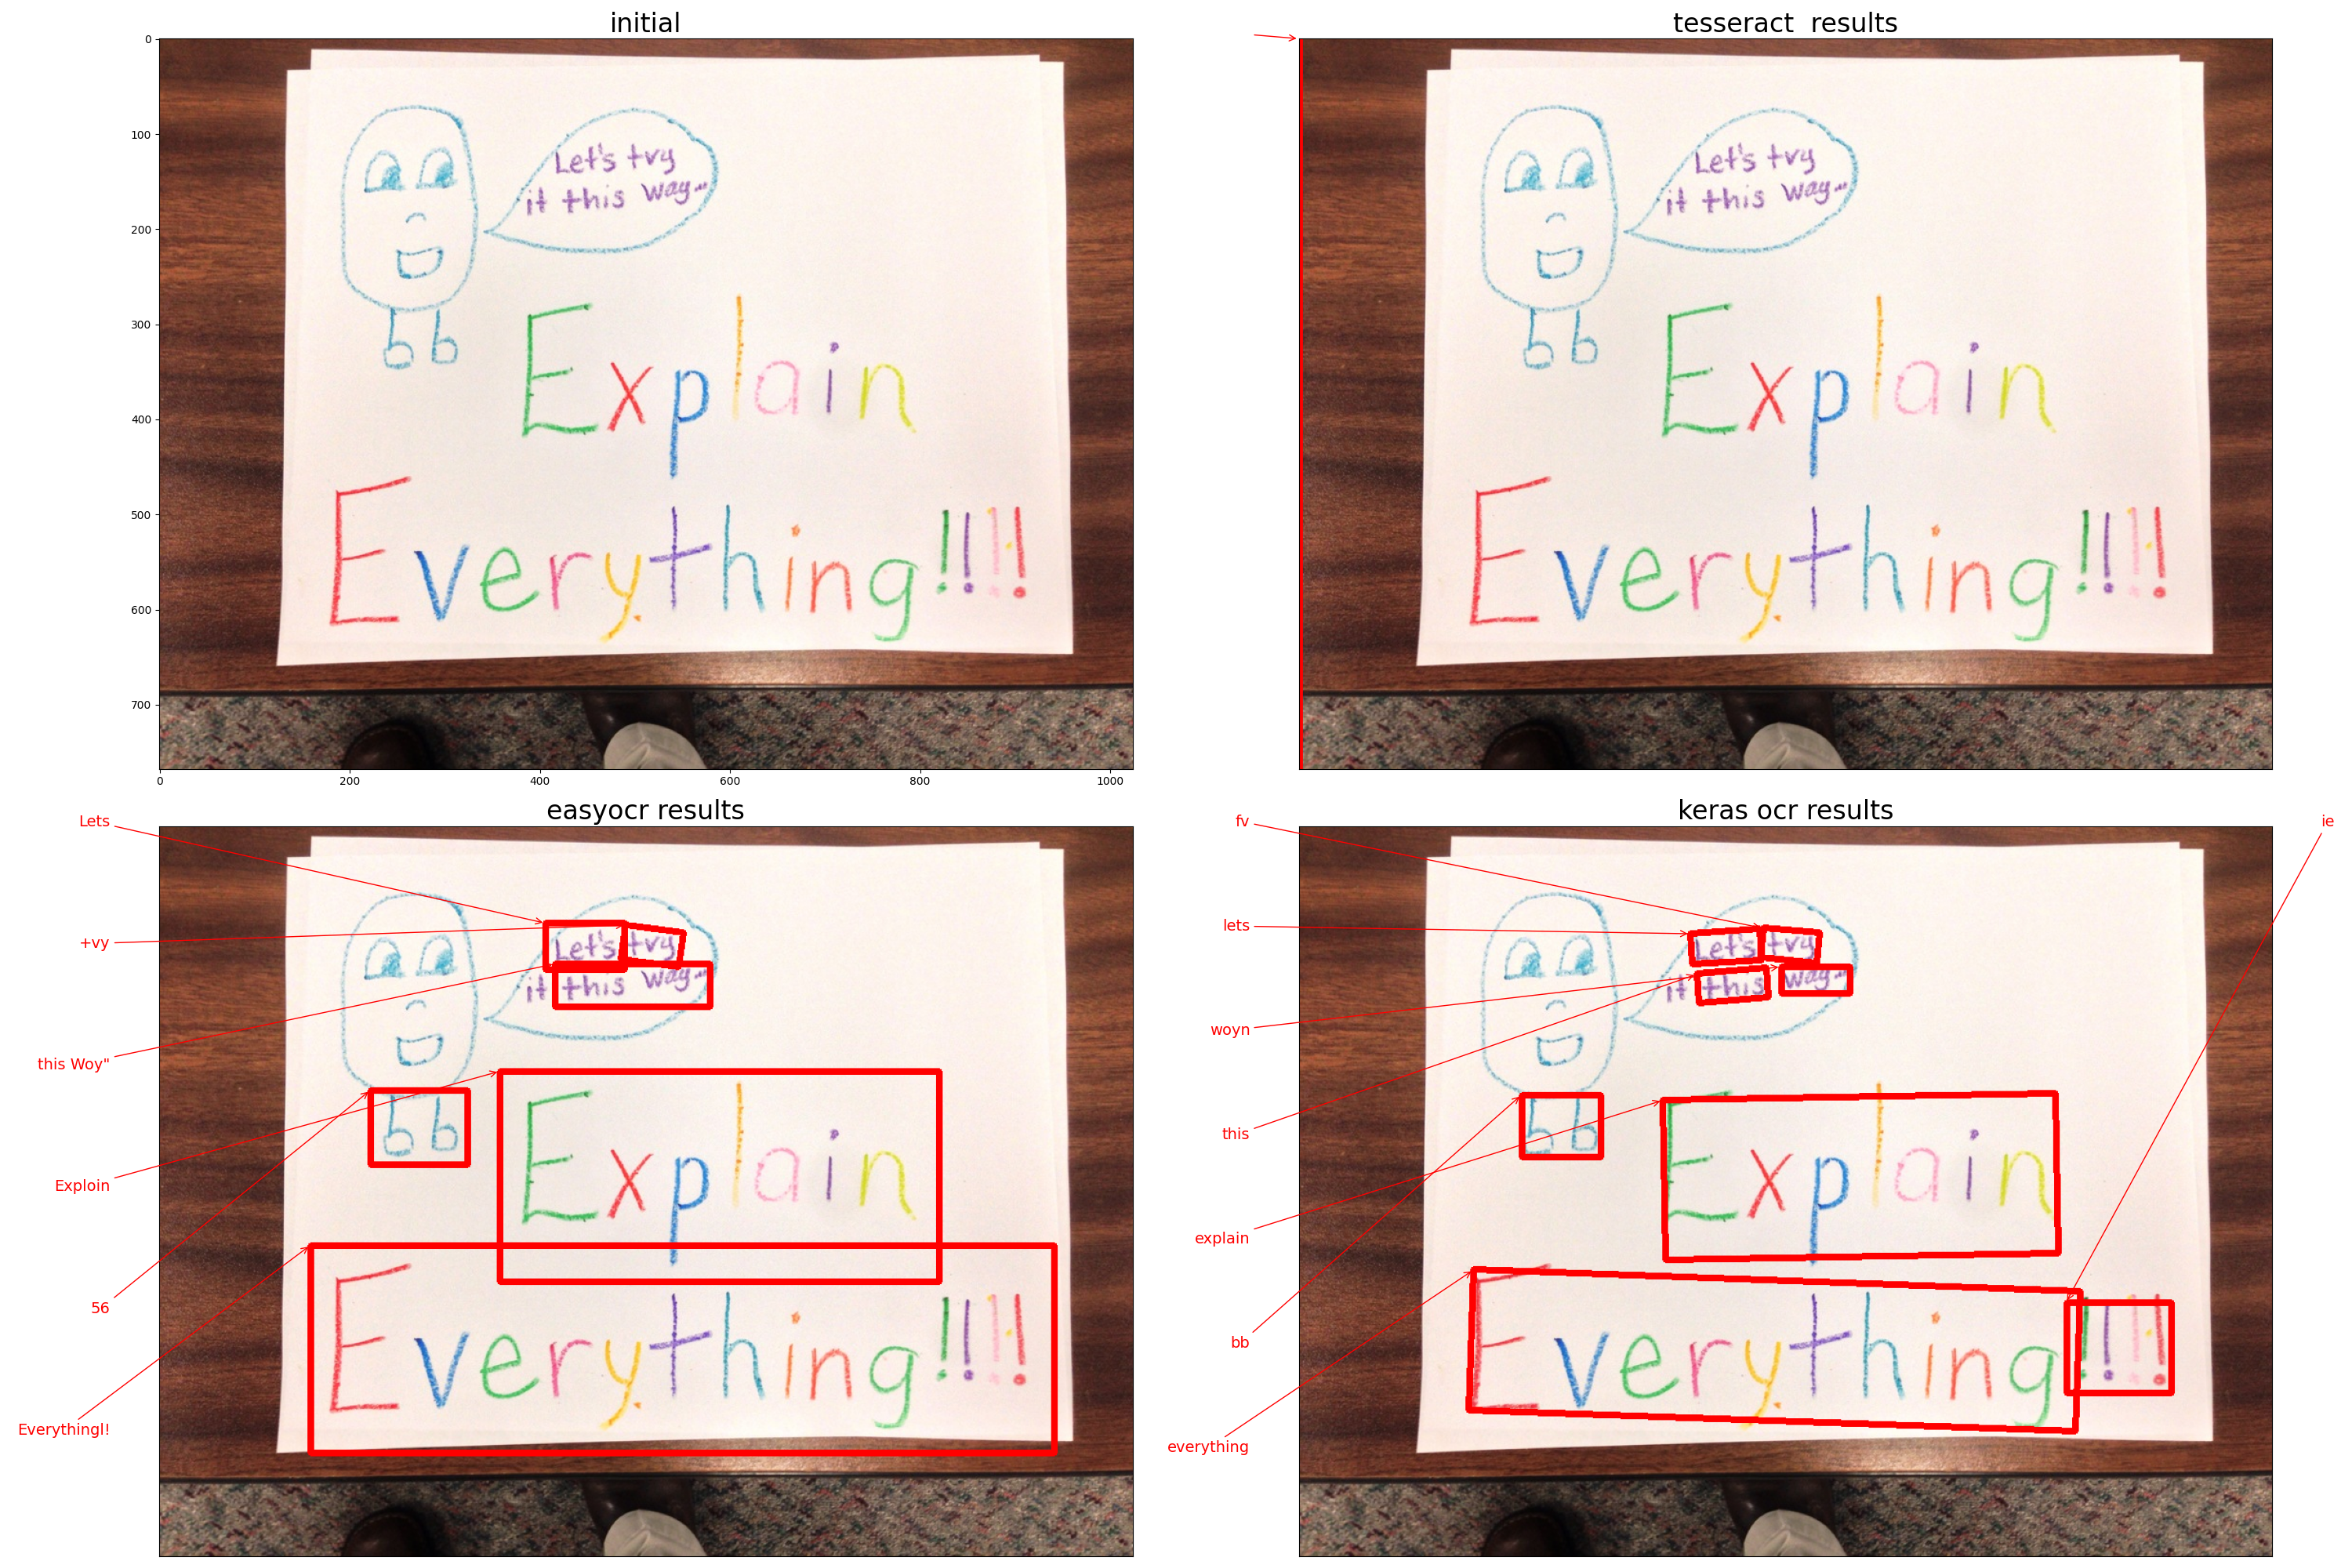 initial
0
100
200
300
400
500
600
700
0 200 400 600 800 1000
Let's try
it this way...
Explain
Everything!!!!
tesseract results
Let's try
it this way...
Explain
Everything!!!!
easyocr results
Lets
+vy
this Woy"
Exploin
56
Everythingl!
Let's try
it this way...
Explain
Everything!!!!
keras ocr results
fv
lets
woyn
this
explain
bb
everything
ie
Let's try
it this way...
Explain
Everything!!!!